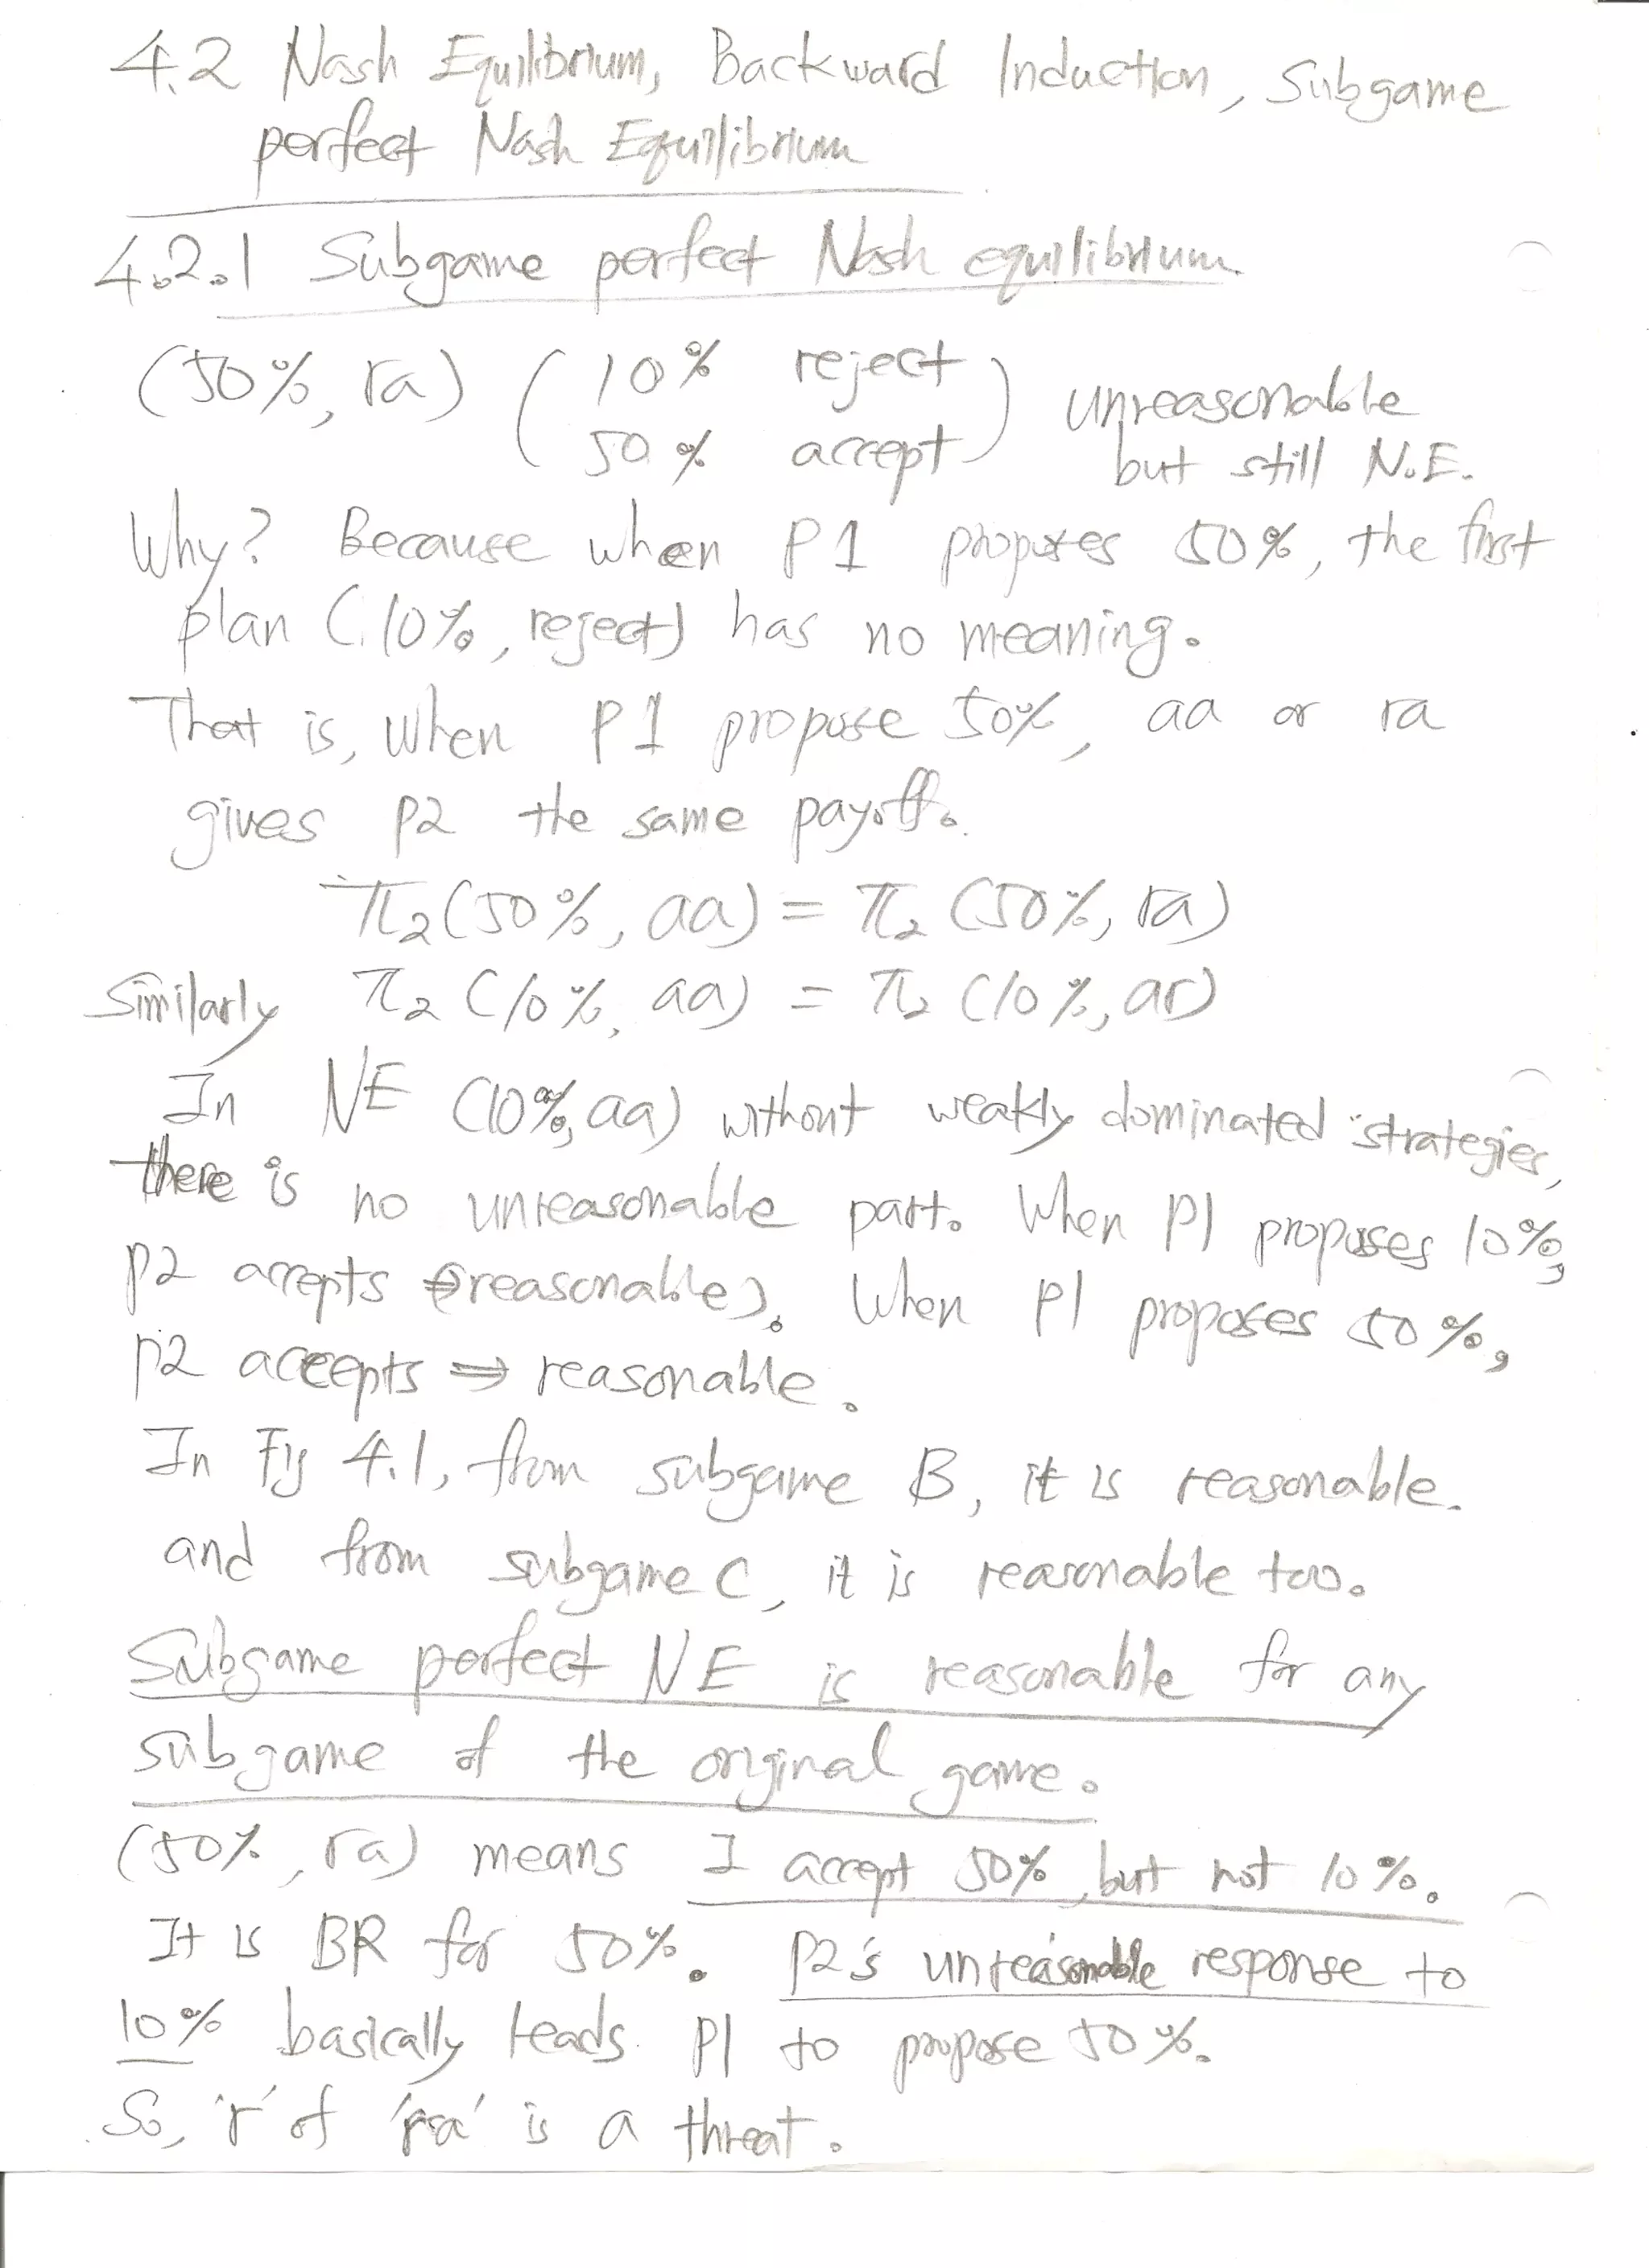 4.2 Nash Equilibrium, Backward Induction, Subgame
perfect Nash Equilibrium
4.2.1 Subgame perfect Nash equilibrium
(50%, ra) ( 10% reject
50% accept ) unreasonable
but still N.E.
Why? Because when P1 proposes 50%, the first
plan (10%, reject) has no meaning.
That is, when P1 propose 50%, aa or ra
gives P2 the same payoff.
π2(50%, aa) = π2 (50%, ra)
Similarly π2 (10%, aa) = π2 (10%, ar)
In NE (10%, aa) without weakly dominated strategies,
there is no unreasonable part. When P1 proposes 10%,
P2 accepts (reasonable). When P1 proposes 50%,
P2 accepts ⇒ reasonable.
In Fig 4.1, from subgame B, it is reasonable.
and from subgame C, it is reasonable too.
Subgame perfect NE is reasonable for any
subgame of the original game.
(50%, ra) means I accept 50%, but not 10%.
It is BR for 50%. P2's unreasonable response to
10% basically leads P1 to propose 50%.
So, 'r' of 'ra' is a threat.